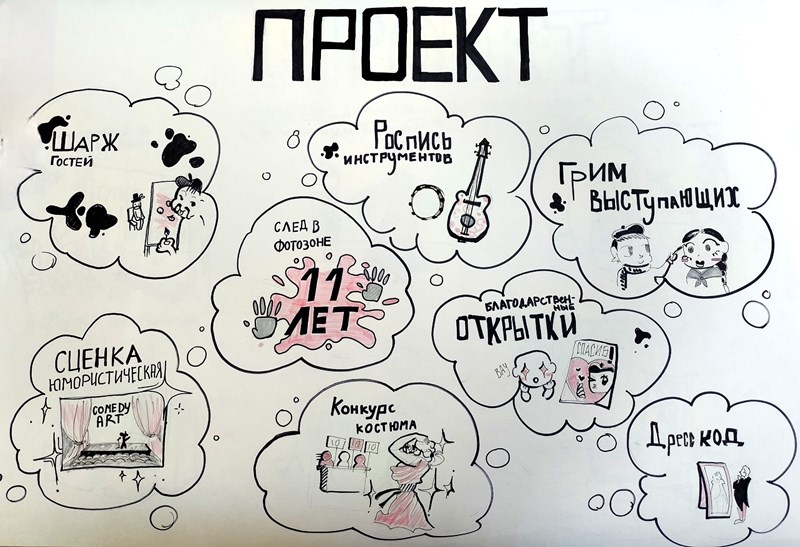 ПРОЕКТ
ШАРЖ
ГОСТЕЙ
Роспись
инструментов
Грим
выступающих
СЛЕД В
ФОТОЗОНЕ
11
ЛЕТ
БЛАГОДАРСТВЕН-
НЫЕ
ОТКРЫТКИ
ВАУ
СПАСИБО
СЦЕНКА
ЮМОРИСТИЧЕСКАЯ
COMEDY
ART
Конкурс
костюма
10 10 10
Дресс код